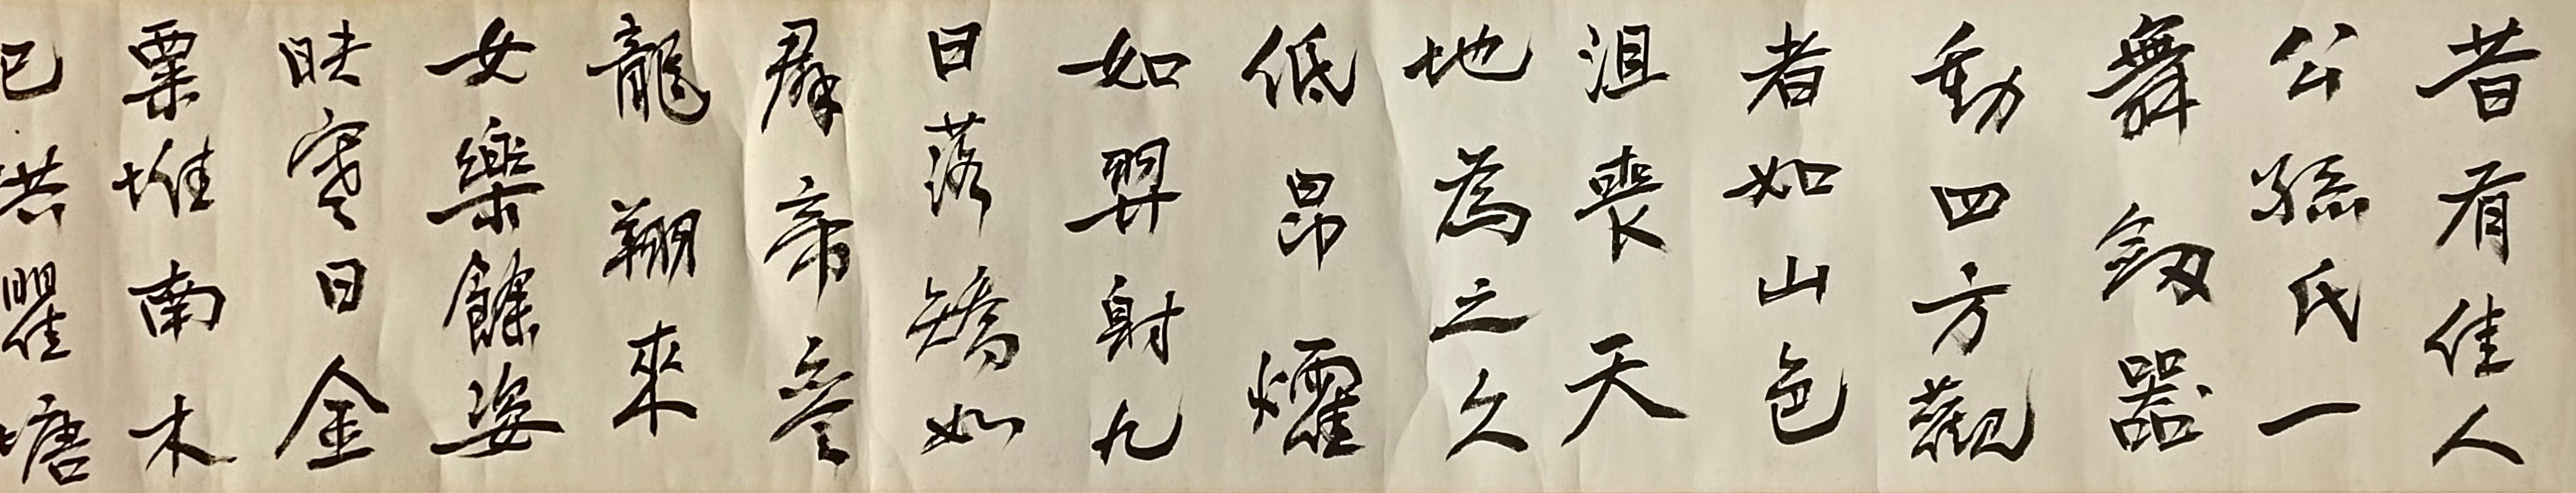 昔有佳人
公孫氏一
舞劒器
動四方觀
者如山色
沮喪天
地為之久
低昂㸌
如羿射九
日落矯如
群帝参
龍翔來
女樂餘姿
映寒日金
粟堆南木
已拱瞿塘